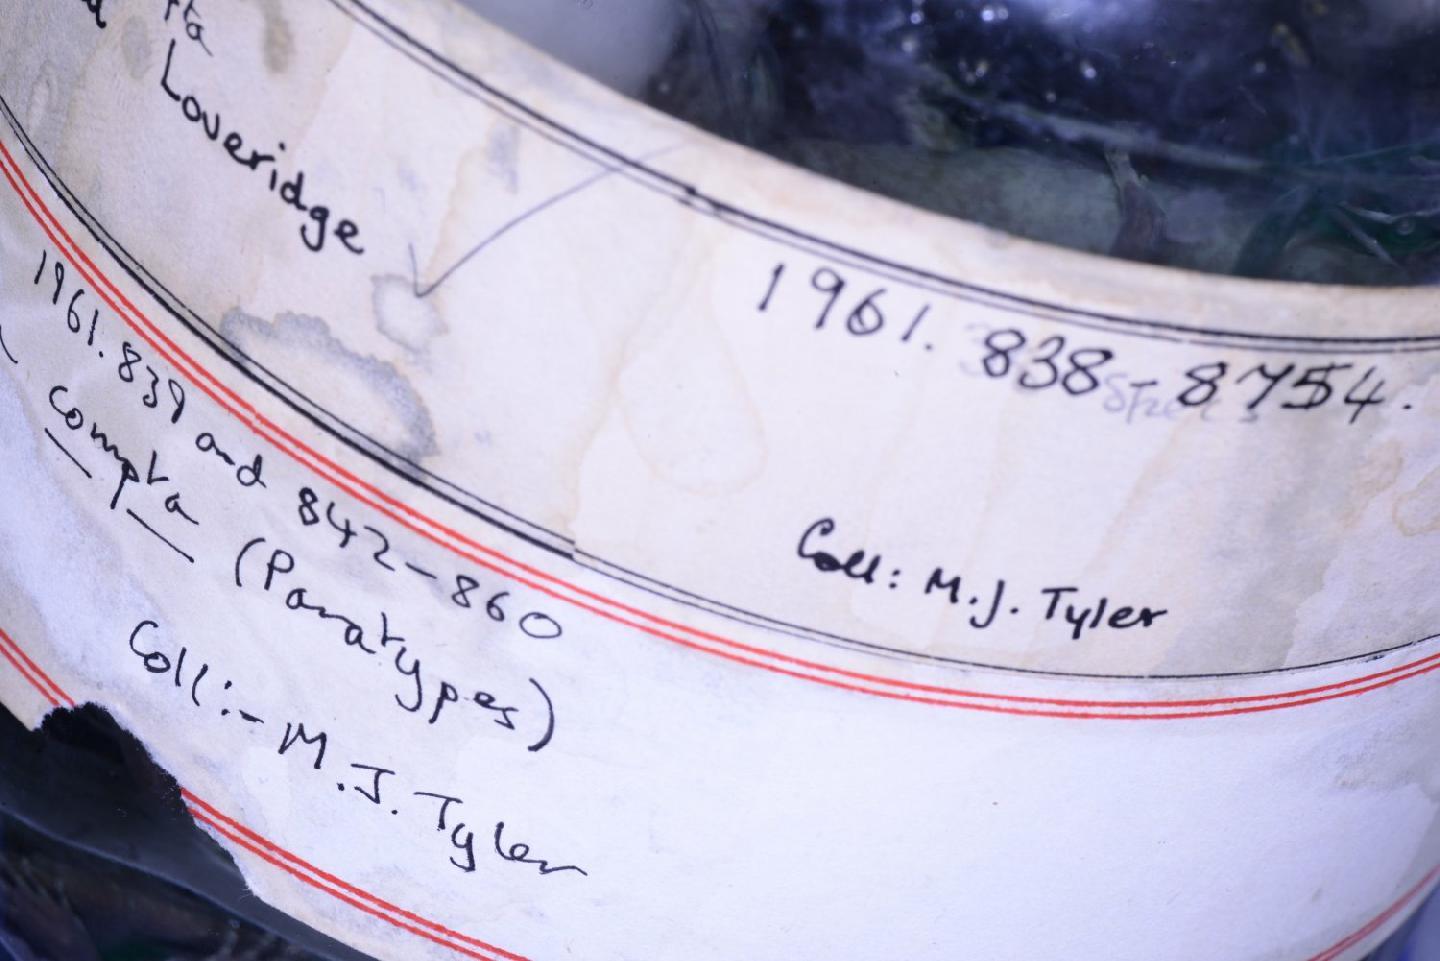 Loveridge
1961. 838 - 8754.
Coll: M.J. Tyler
1961.839 and 842-860
compta (Paratypes)
Coll:- M.J. Tyler